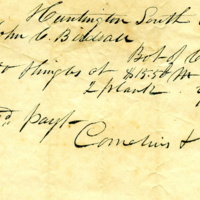 Huntington South
John C Birdsall
Bot of C
Shingles at $15.50 M
2 plank
payt
Cornelius